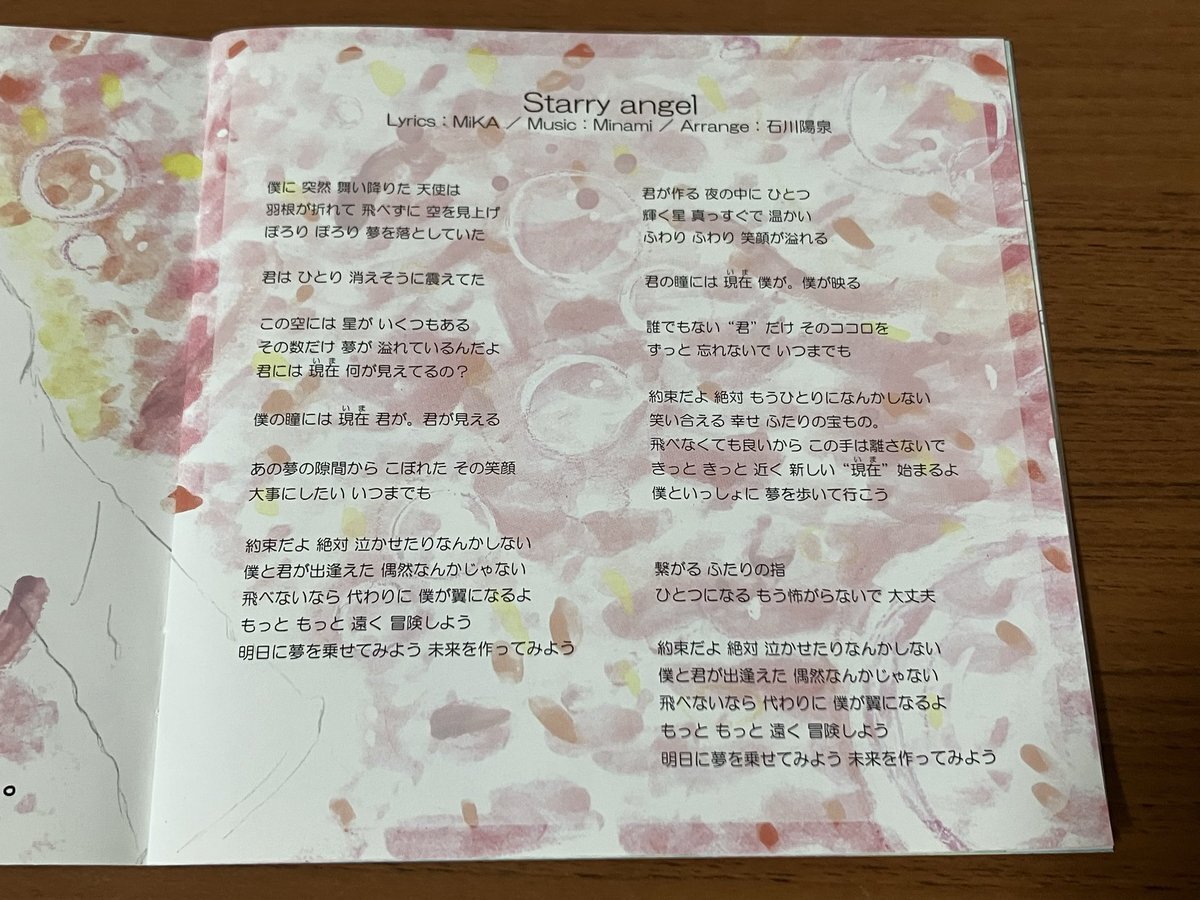 Starry angel
Lyrics：MiKA ／ Music：Minami ／ Arrange：石川陽泉
僕に 突然 舞い降りた 天使は
羽根が折れて 飛べずに 空を見上げ
ぽろり ぽろり 夢を落としていた
君は ひとり 消えそうに震えてた
この空には 星が いくつもある
その数だけ 夢が 溢れているんだよ
いま
君には 現在 何が見えてるの？
いま
僕の瞳には 現在 君が。君が見える
あの夢の隙間から こぼれた その笑顔
大事にしたい いつまでも
約束だよ 絶対 泣かせたりなんかしない
僕と君が出逢えた 偶然なんかじゃない
飛べないなら 代わりに 僕が翼になるよ
もっと もっと 遠く 冒険しよう
明日に夢を乗せてみよう 未来を作ってみよう
君が作る 夜の中に ひとつ
輝く星 真っすぐで 温かい
ふわり ふわり 笑顔が溢れる
いま
君の瞳には 現在 僕が。僕が映る
誰でもない “君” だけ そのココロを
ずっと 忘れないで いつまでも
約束だよ 絶対 もうひとりになんかしない
笑い合える 幸せ ふたりの宝もの。
飛べなくても良いから この手は離さないで
いま
きっと きっと 近く 新しい “現在” 始まるよ
僕といっしょに 夢を歩いて行こう
繋がる ふたりの指
ひとつになる もう怖がらないで 大丈夫
約束だよ 絶対 泣かせたりなんかしない
僕と君が出逢えた 偶然なんかじゃない
飛べないなら 代わりに 僕が翼になるよ
もっと もっと 遠く 冒険しよう
明日に夢を乗せてみよう 未来を作ってみよう